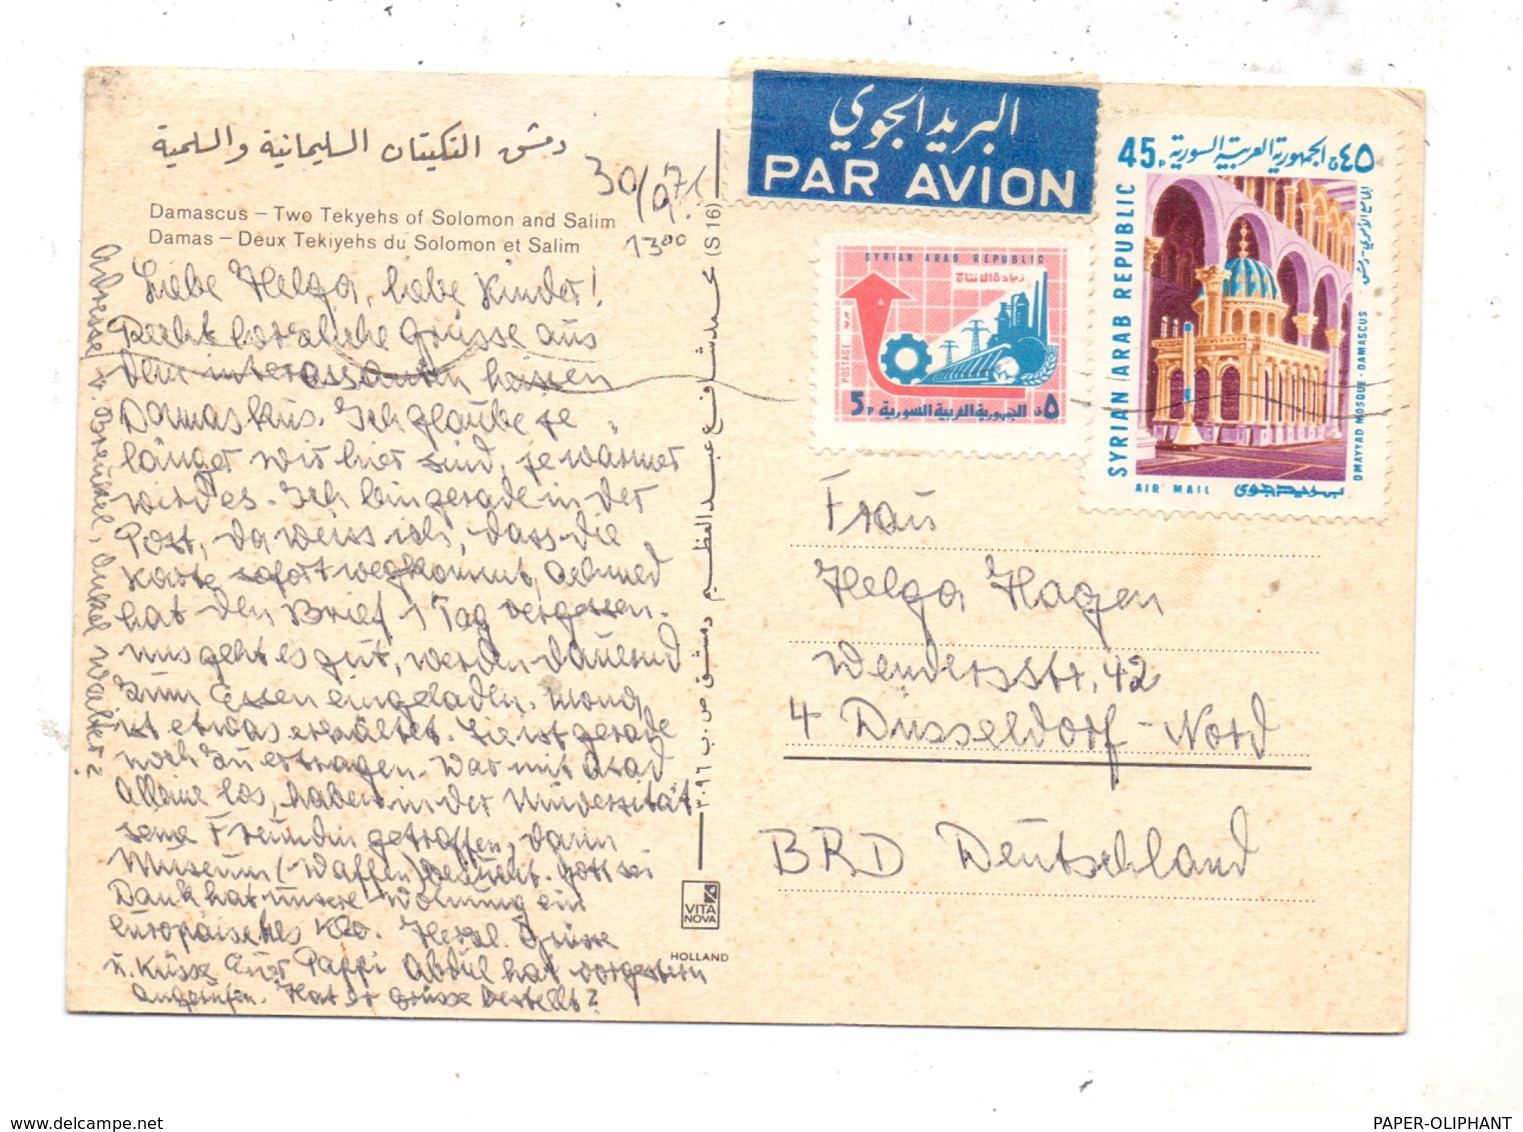 دمشق التكيتان السليمانية والسلمية
Damascus – Two Tekyehs of Solomon and Salim
Damas – Deux Tekiyehs du Solomon et Salim
30/9.71
13°°
Liebe Helga, liebe Kinder!
Recht herzliche Grüsse aus
dem interessanten heissen
Damaskus. Ich glaube je
länger wir hier sind, je warmer
wird es. Ich bin gerade in der
Post, da weiss ich, dass die
Karte sofort wegkommt, Achmed
hat den Brief 1 Tag vergessen.
uns geht es gut, werden dauernd
zum Essen eingeladen. Mona
ist etwas erkältet. Sie ist gerade
noch zu ertragen. War mit Asad
alleine los, haben in der Universität
seine Freundin getroffen, dann
Museum (Waffen) besucht. Gott sei
Dank hat unsere Wohnung ein
europäisches Klo. Herzl. Grüsse
u. Küsse Euer Pappi Abdul hat vorgestern
angerufen. Hat er Grüsse bestellt?
Adresse v. Breukel, Onkel Walter?
(S 16)
محمد شافع عبد العظيم دمشق ص.ب ٣٠٩٦
VITA
NOVA
HOLLAND
البريد الجوي
PAR AVION
SYRIAN ARAB REPUBLIC
زيادة الانتاج
POSTAGE بريد
5P الجمهورية العربية السورية ٥ق
45P الجمهورية العربية السورية ٤٥ق
SYRIAN ARAB REPUBLIC
الجامع الاموي - دمشق
OMAYYAD MOSQUE - DAMASCUS
AIR MAIL بريد جوي
Frau
Helga Hagen
Wendersstr. 42
4 Düsseldorf-Nord
BRD Deutschland
www.delcampe.net
PAPER-OLIPHANT